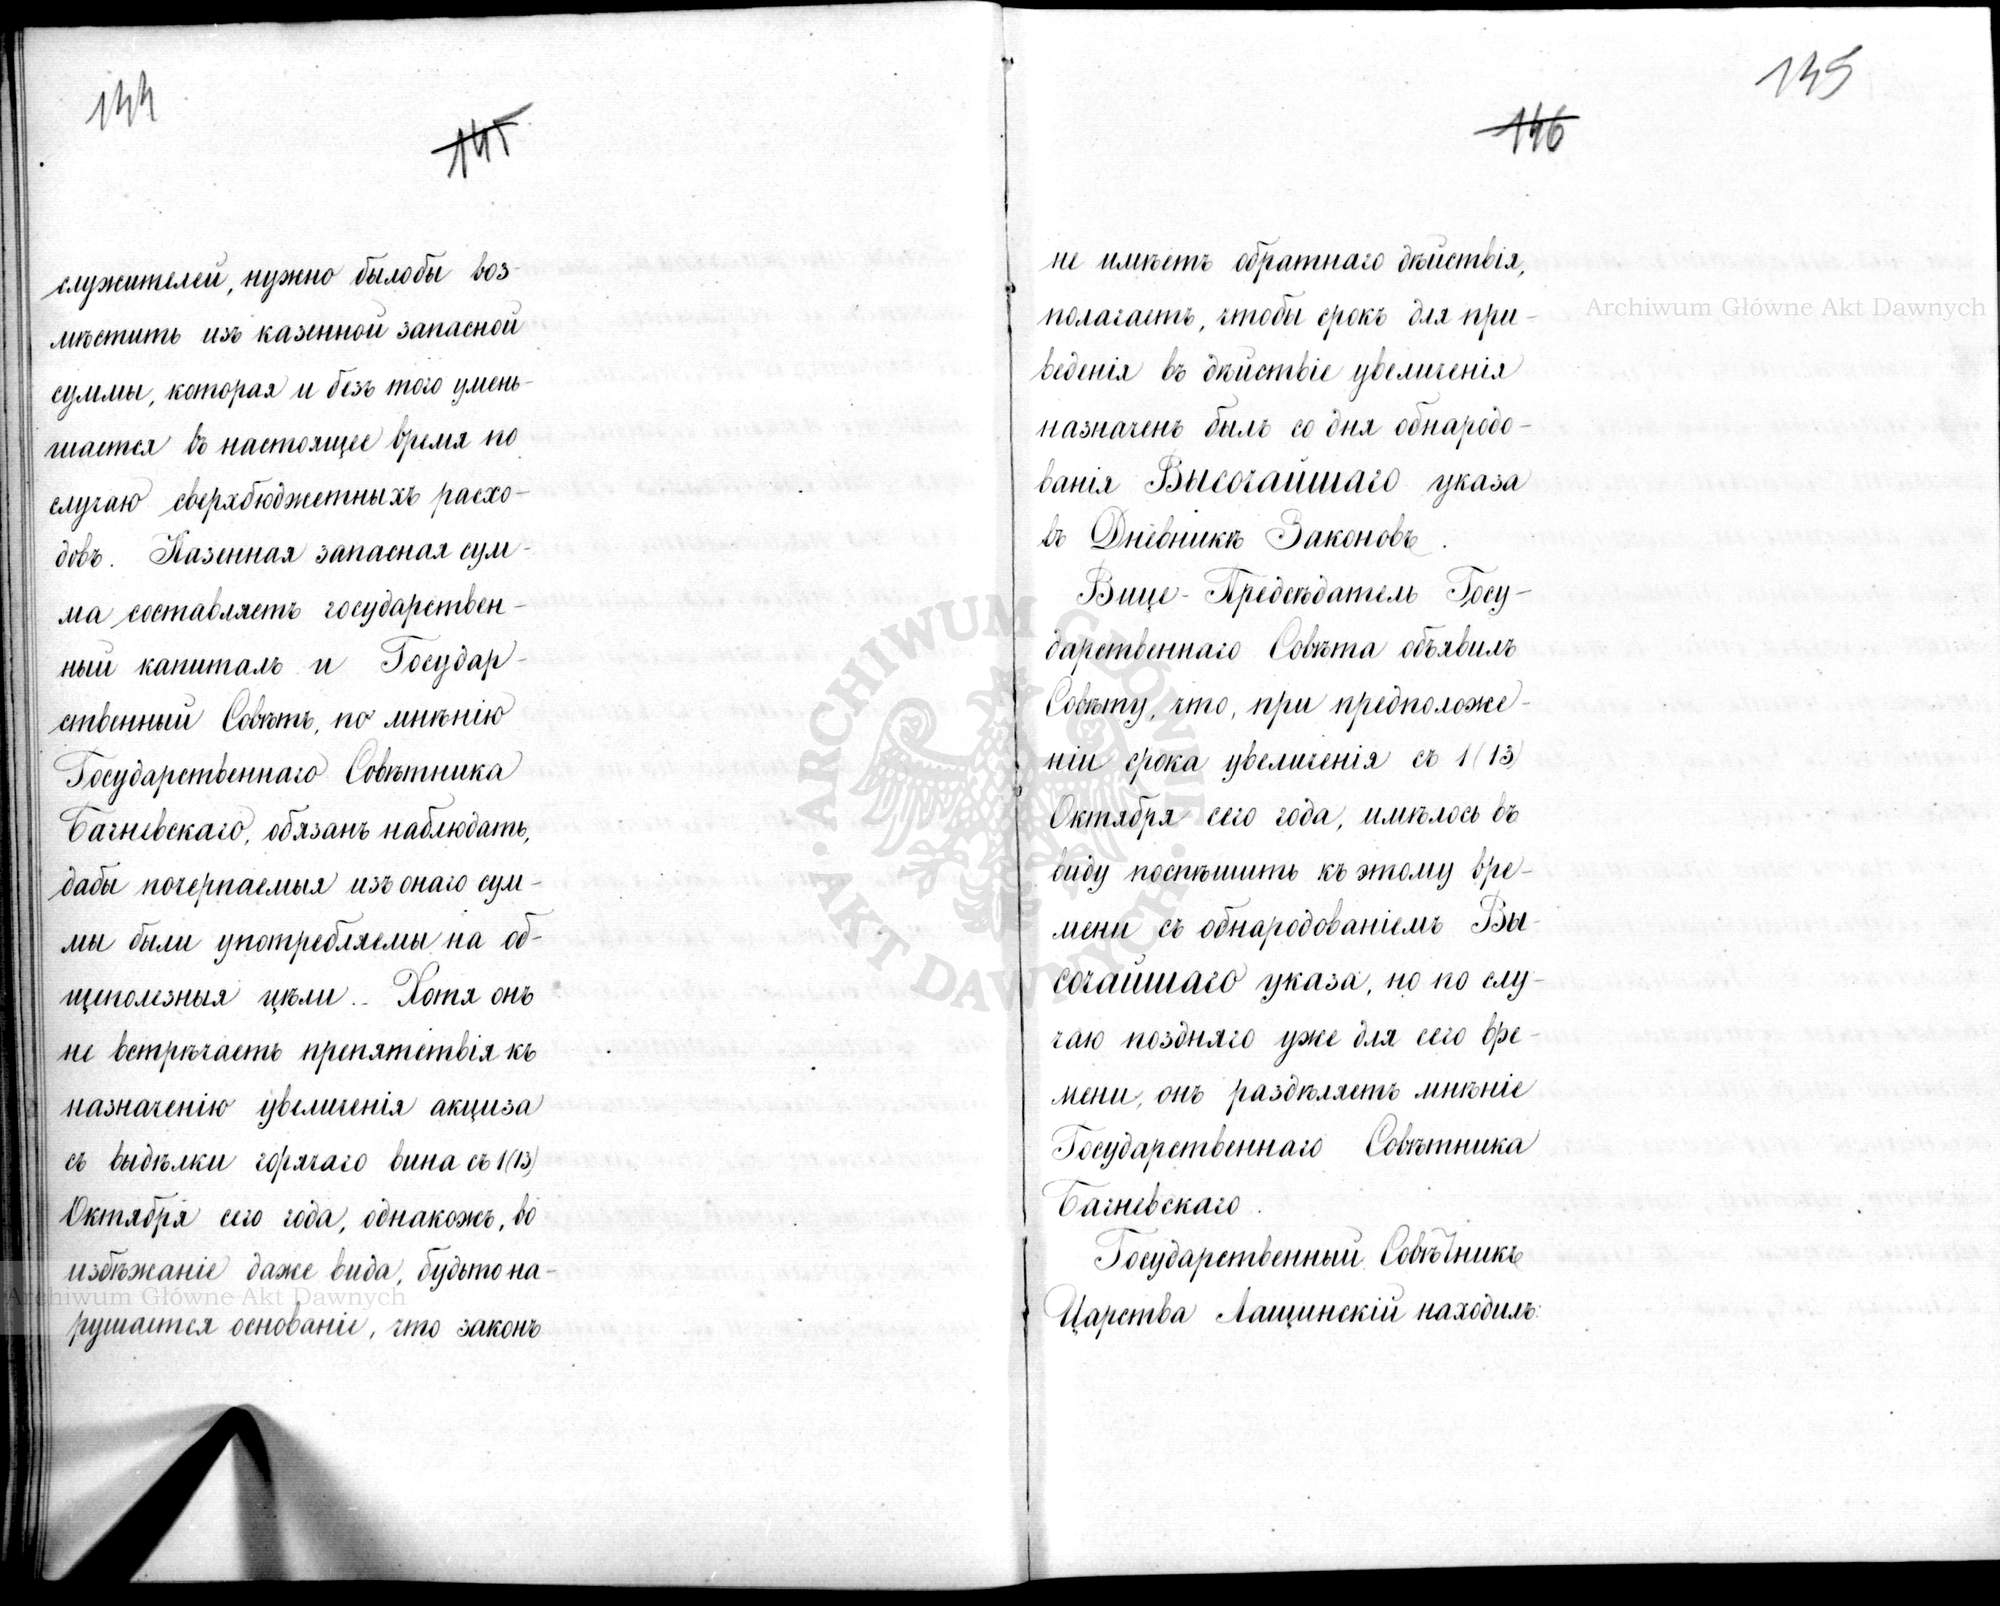 144
145
служителей, нужно былобы воз-
мѣстить изъ казенной запасной
суммы, которая и безъ того умень-
шается въ настоящее время по
случаю сверхбюджетныхъ расхо-
довъ. Казенная запасная сум-
ма составляетъ государствен-
ный капиталъ и Государ-
ственный Совѣтъ, по мнѣнію
Государственнаго Совѣтника
Багневскаго, обязанъ наблюдать,
дабы почерпаемыя изъ онаго сум-
мы были употребляемы на об-
щеполезныя цѣли. - Хотя онъ
не встрѣчаетъ препятствія къ
назначенію увеличенія акциза
съ выдѣлки горячаго вина съ 1(13)
Октября сего года, однакожъ, во
избѣжаніе даже вида, будьто на-
рушается основаніе, что законъ
Archiwum Główne Akt Dawnych
145
146
не имѣетъ обратнаго дѣйствія,
полагаетъ, чтобы срокъ для при-
веденія въ дѣйствіе увеличенія
назначенъ былъ со дня обнародо-
ванія Высочайшаго указа
въ Дневникѣ Законовъ.
Вице-Предсѣдатель Госу-
дарственнаго Совѣта объявилъ
Совѣту, что, при предположе-
ніи срока увеличенія съ 1(13)
Октября сего года, имѣлось въ
виду поспѣшить къ этому вре-
мени съ обнародованіемъ Вы-
сочайшаго указа, но по слу-
чаю поздняго уже для сего вре-
мени, онъ раздѣляетъ мнѣніе
Государственнаго Совѣтника
Багневскаго.
Государственный Совѣтникъ
Царства Лащинскій находилъ:
Archiwum Główne Akt Dawnych
ARCHIWUM GŁÓWNE
AKT DAWNYCH